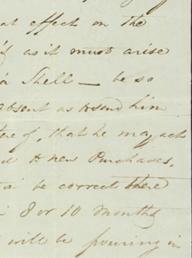 at effect on the
as it must arise
Shell — be so
absent as to send him
of, that he may act
d to new Purchases,
be correct there
8 or 10 Months
will be pouring in